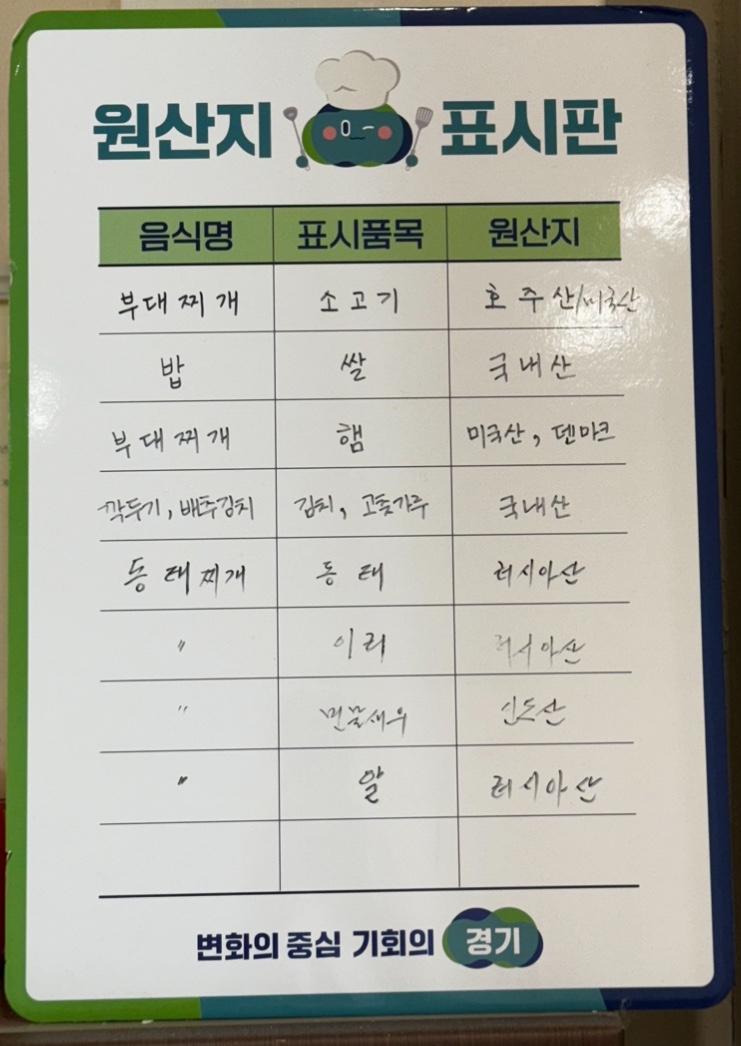 원산지 표시판
음식명 표시품목 원산지
부대찌개 소고기 호주산/미국산
밥 쌀 국내산
부대찌개 햄 미국산, 덴마크
깍두기, 배추김치 김치, 고춧가루 국내산
동태찌개 동태 러시아산
〃 이리 러시아산
〃 민물새우 인도산
〃 알 러시아산
변화의 중심 기회의 경기